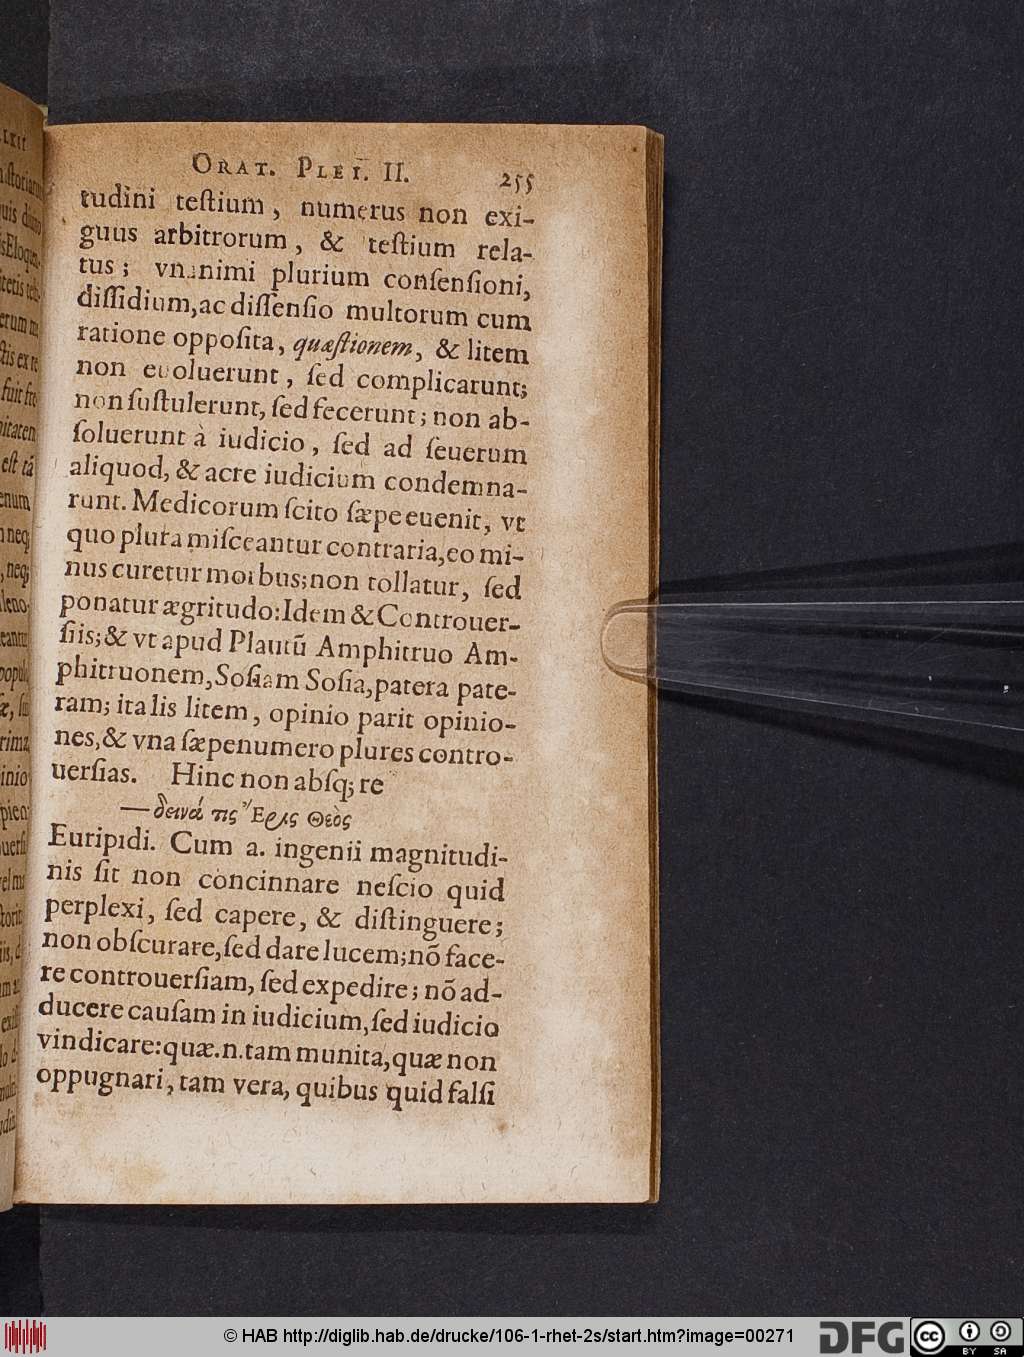 ORAT. PLEI. II. 255
tudini teſtium, numerus non exi-
guus arbitrorum, & teſtium rela-
tus; vnanimi plurium conſenſioni,
diſſidium, ac diſſenſio multorum cum
ratione oppoſita, quæſtionem, & litem
non euoluerunt, ſed complicarunt;
non ſuſtulerunt, ſed fecerunt; non ab-
ſoluerunt à iudicio, ſed ad ſeuerum
aliquod, & acre iudicium condemna-
runt. Medicorum ſcito ſæpe euenit, vt
quo plura miſceantur contraria, eo mi-
nus curetur morbus; non tollatur, ſed
ponatur ægritudo: Idem & Controuer-
ſiis; & vt apud Plautũ Amphitruo Am-
phitruonem, Soſiam Soſia, patera pate-
ram; ita lis litem, opinio parit opinio-
nes, & vna ſæpenumero plures contro-
uerſias. Hinc non abſq; re
— δεινά τις Ἔρις Θεὸς
Euripidi. Cum a. ingenii magnitudi-
nis ſit non concinnare neſcio quid
perplexi, ſed capere, & diſtinguere;
non obſcurare, ſed dare lucem; nõ face-
re controuerſiam, ſed expedire; nõ ad-
ducere cauſam in iudicium, ſed iudicio
vindicare: quæ.n. tam munita, quæ non
oppugnari, tam vera, quibus quid falſi
© HAB http://diglib.hab.de/drucke/106-1-rhet-2s/start.htm?image=00271
DFG
cc BY SA